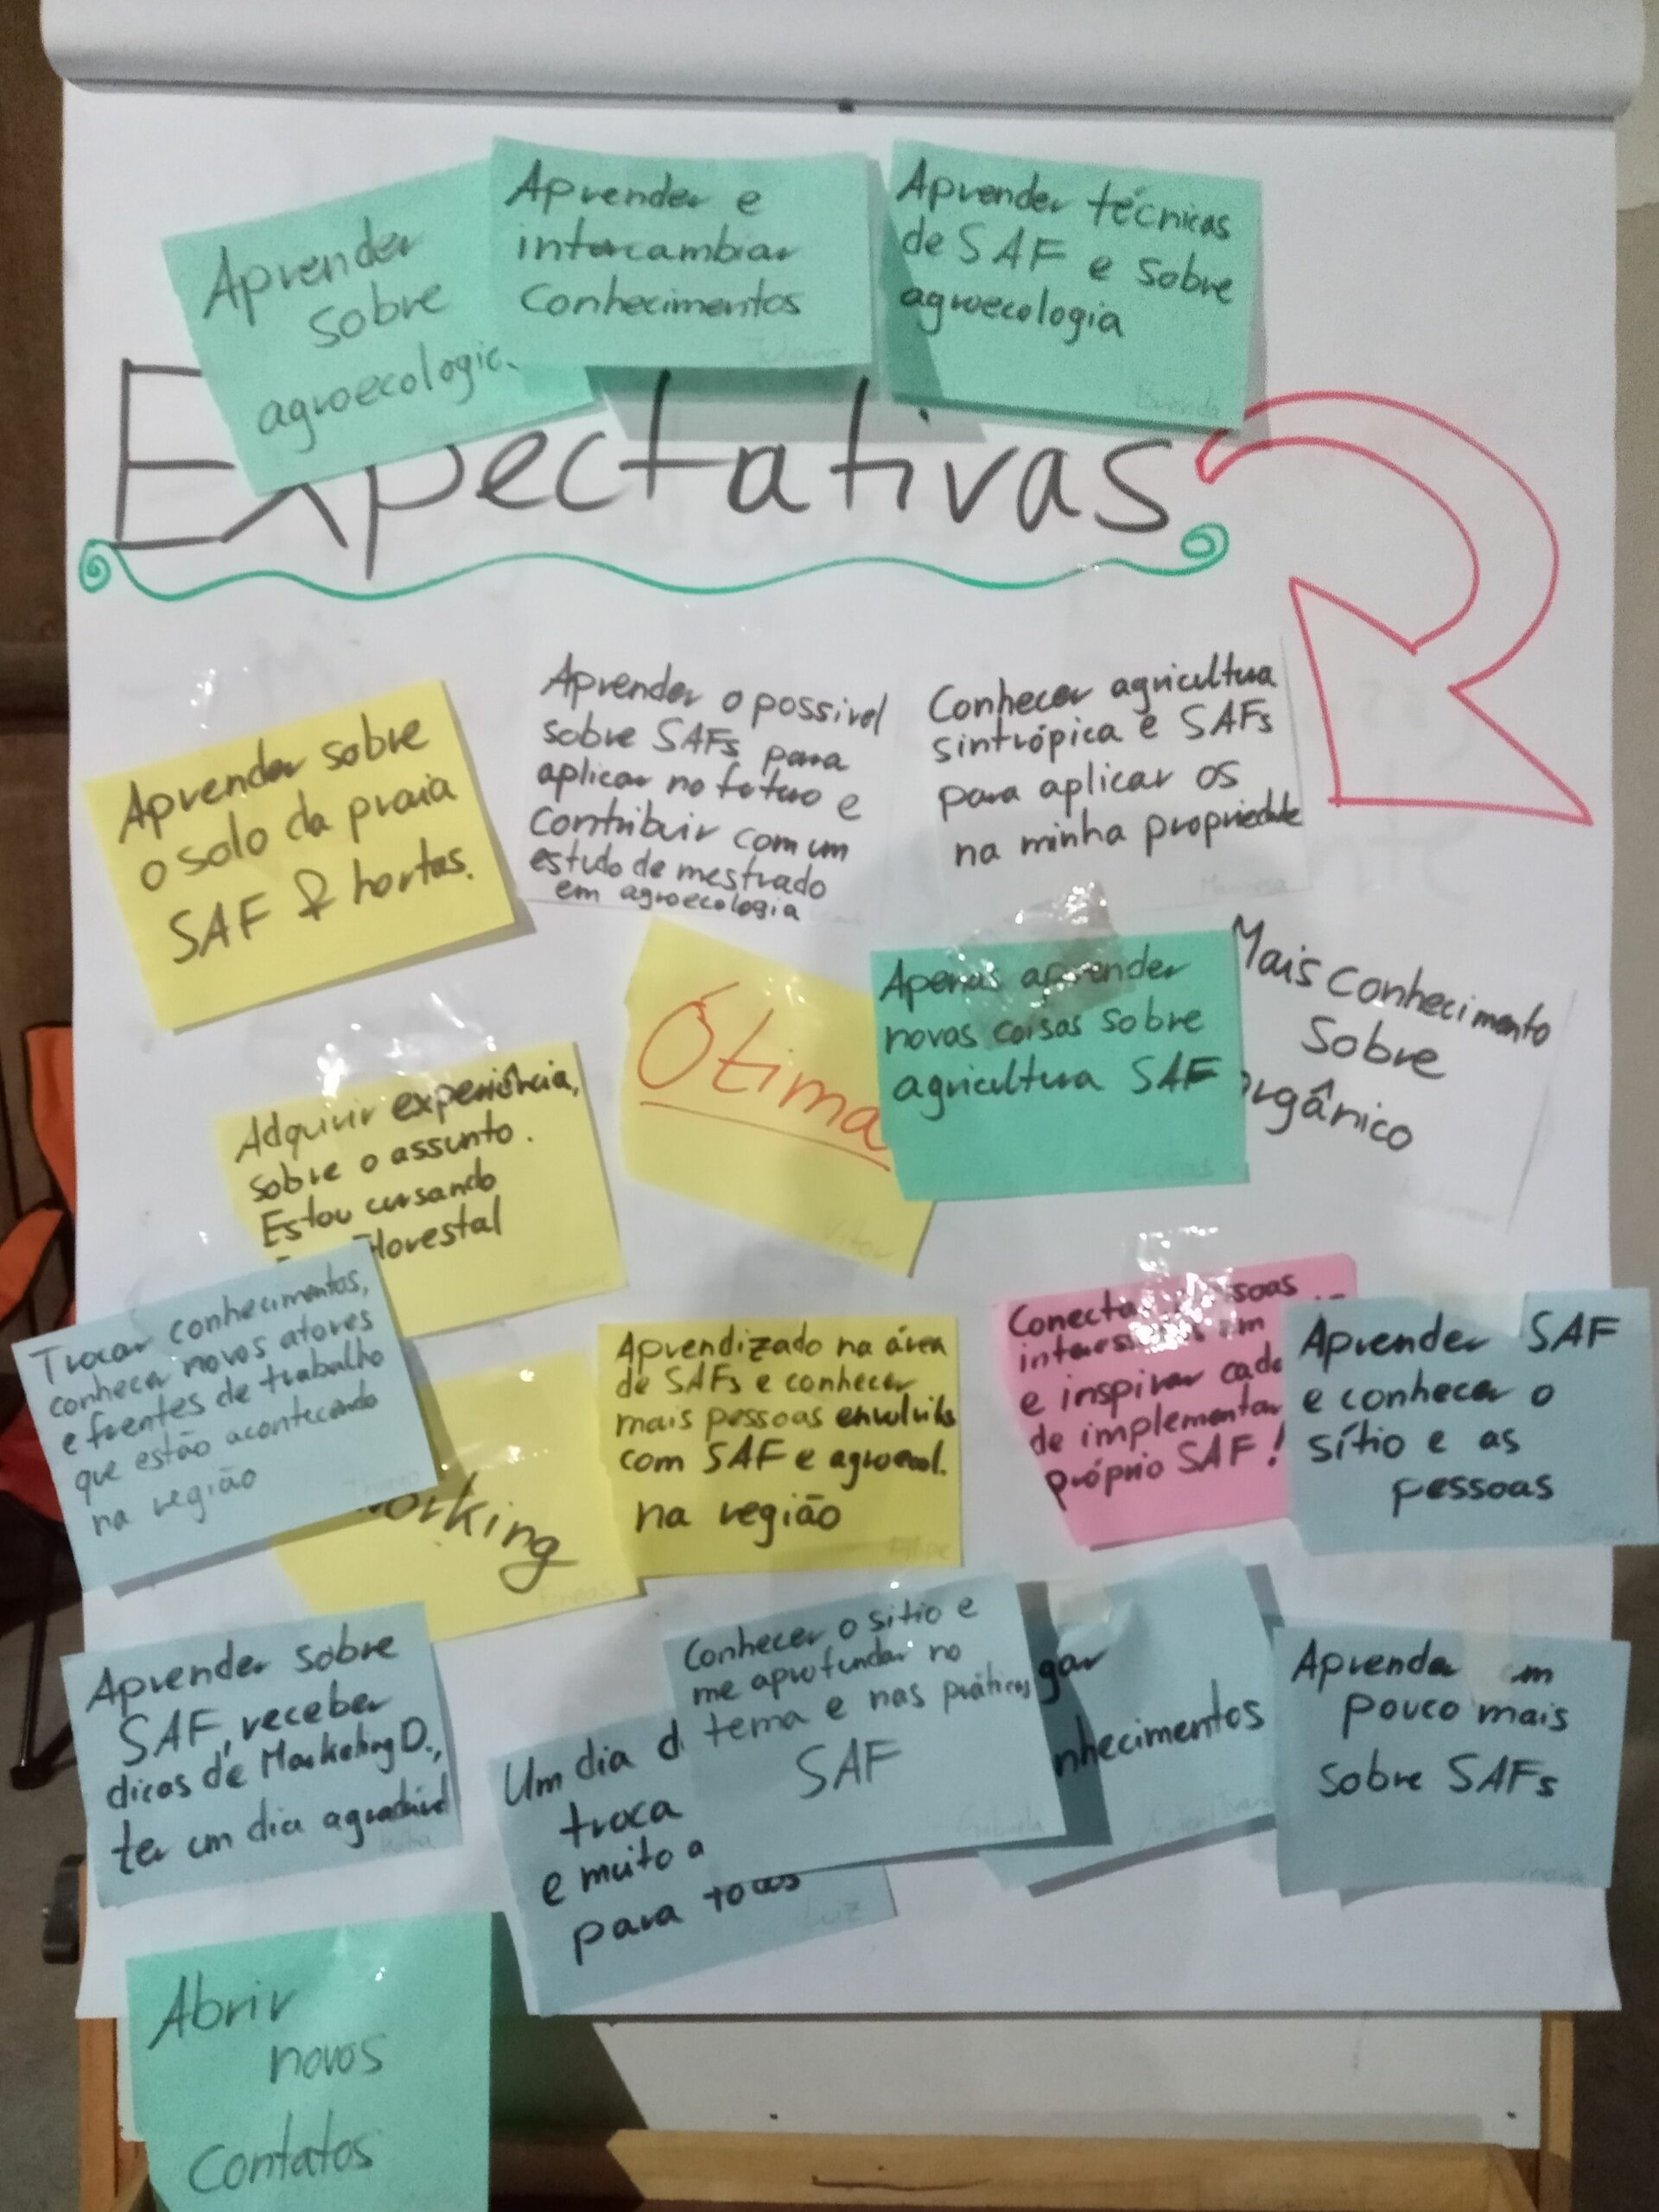 Aprender
sobre
agroecologia
Aprender e
intercambiar
Conhecimentos
Aprender técnicas
de SAF e sobre
agroecologia
Brenda
Expectativas
Aprender sobre
o solo da praia
SAF & hortas.
Aprender o possivel
sobre SAFs para
aplicar no futuro e
Contribuir com um
estudo de mestrado
em agroecologia
Conhecer agricultura
sintrópica e SAFs
para aplicar os
na minha propriedade
Ótima
Vitor
Apenas aprender
novas coisas sobre
agricultura SAF
Mais conhecimento
Sobre
orgânico
Adquirir experiência,
sobre o assunto.
Estou cursando
Florestal
Trocar conhecimentos,
conhecer novos atores
e frentes de trabalho
que estão acontecendo
na região
working
Eneas
Aprendizado na área
de SAFs e conhecer
mais pessoas envolvidas
com SAF e agroecol.
na região
Filipe
Conectar pessoas
interessadas em
e inspirar cada
de implementar
próprio SAF!
Aprender SAF
e conhecer o
sítio e as
pessoas
Jean
Aprender sobre
SAF, receber
dicas de Marketing D.,
ter um dia agradável
Um dia d
troca
e muito a
para todos
Luiz
Conhecer o sitio e
me aprofundar no
tema e nas práticas
SAF
Gabriela
gar
nhecimentos
Aprender um
pouco mais
sobre SAFs
Abrir
novos
Contatos